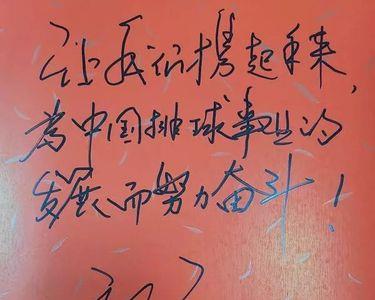 让我们携起手来，
为中国排球事业的
发展而努力奋斗！